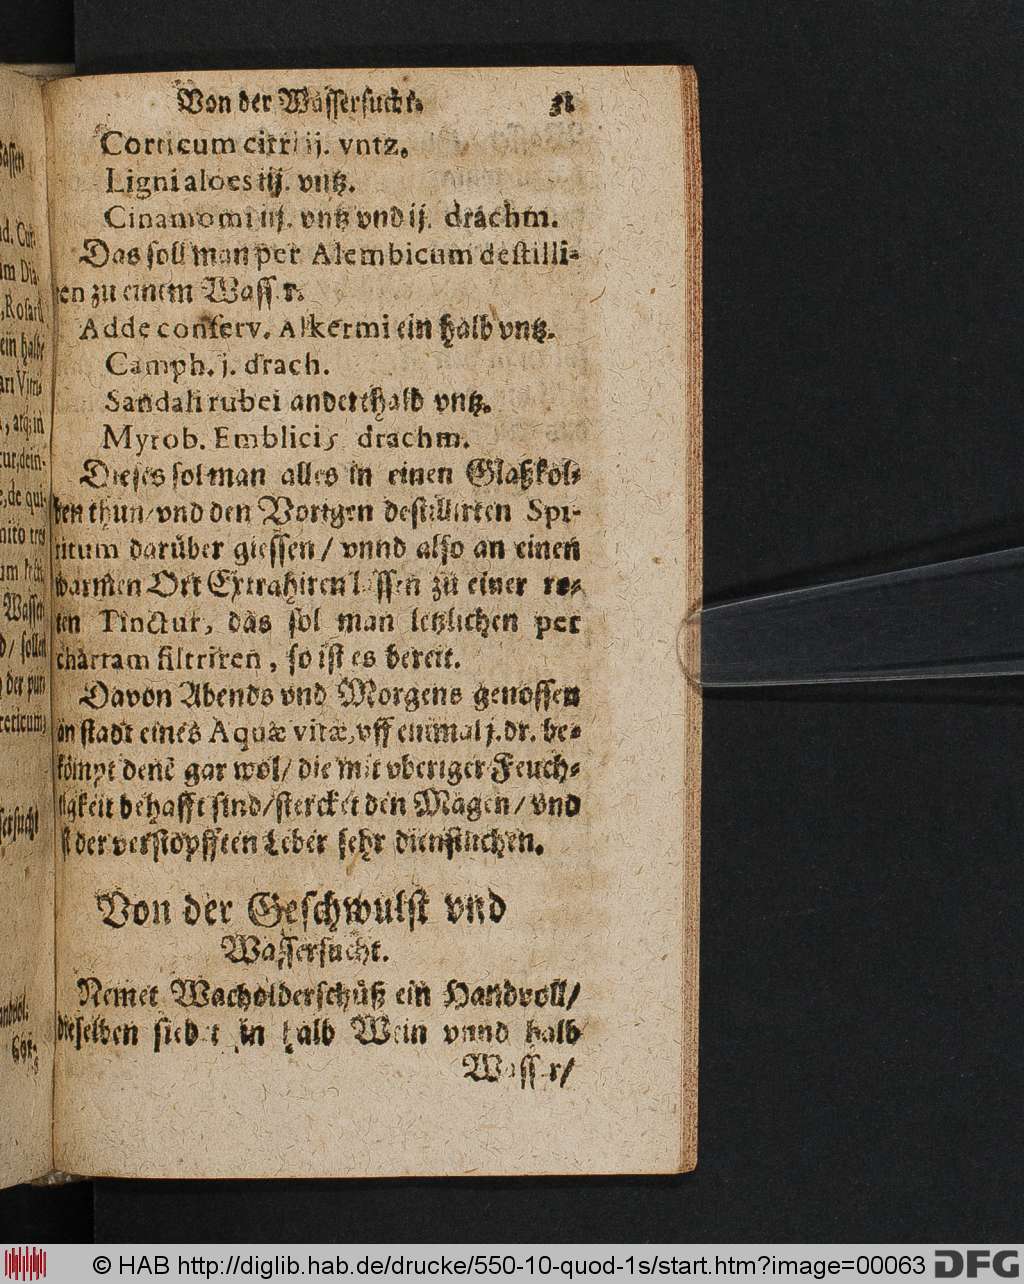 Von der Wassersucht.
Corticum citri ij. vntz.
Ligni aloes iij. vntz.
Cinamomi iij. vntz vnd ij. drachm.
Das soll man per Alembicum destilli-
ren zu einem Wasser.
Adde conserv. Alkermi ein halb vntz.
Camph. j. drach.
Sandali rubei anderthalb vntz.
Myrob. Emblici drachm.
Dieses sol man alles in einen Glaßkol-
ben thun/vnd den Vorigen destillirten Spi-
ritum darüber giessen/ vnnd also an einen
warmen Ort Extrahiren lassen zu einer ro-
ten Tinctur, das sol man letzlichen per
chartam filtriren, so ist es bereit.
Davon Abends vnd Morgens genossen
an stadt eines Aquæ vitæ, vff einmal j. dr. be-
kömpt denē gar wol/ die mit vberiger Feuch-
tigkeit behafft sind/stercket den Magen/vnd
ist der verstopfften Leber sehr dienstlichen.
Von der Geschwulst vnd
Wassersucht.
Nemet Wacholderschüß ein Handvoll/
dieselben siedet in halb Wein vnnd halb
Wasser/
© HAB http://diglib.hab.de/drucke/550-10-quod-1s/start.htm?image=00063 DFG